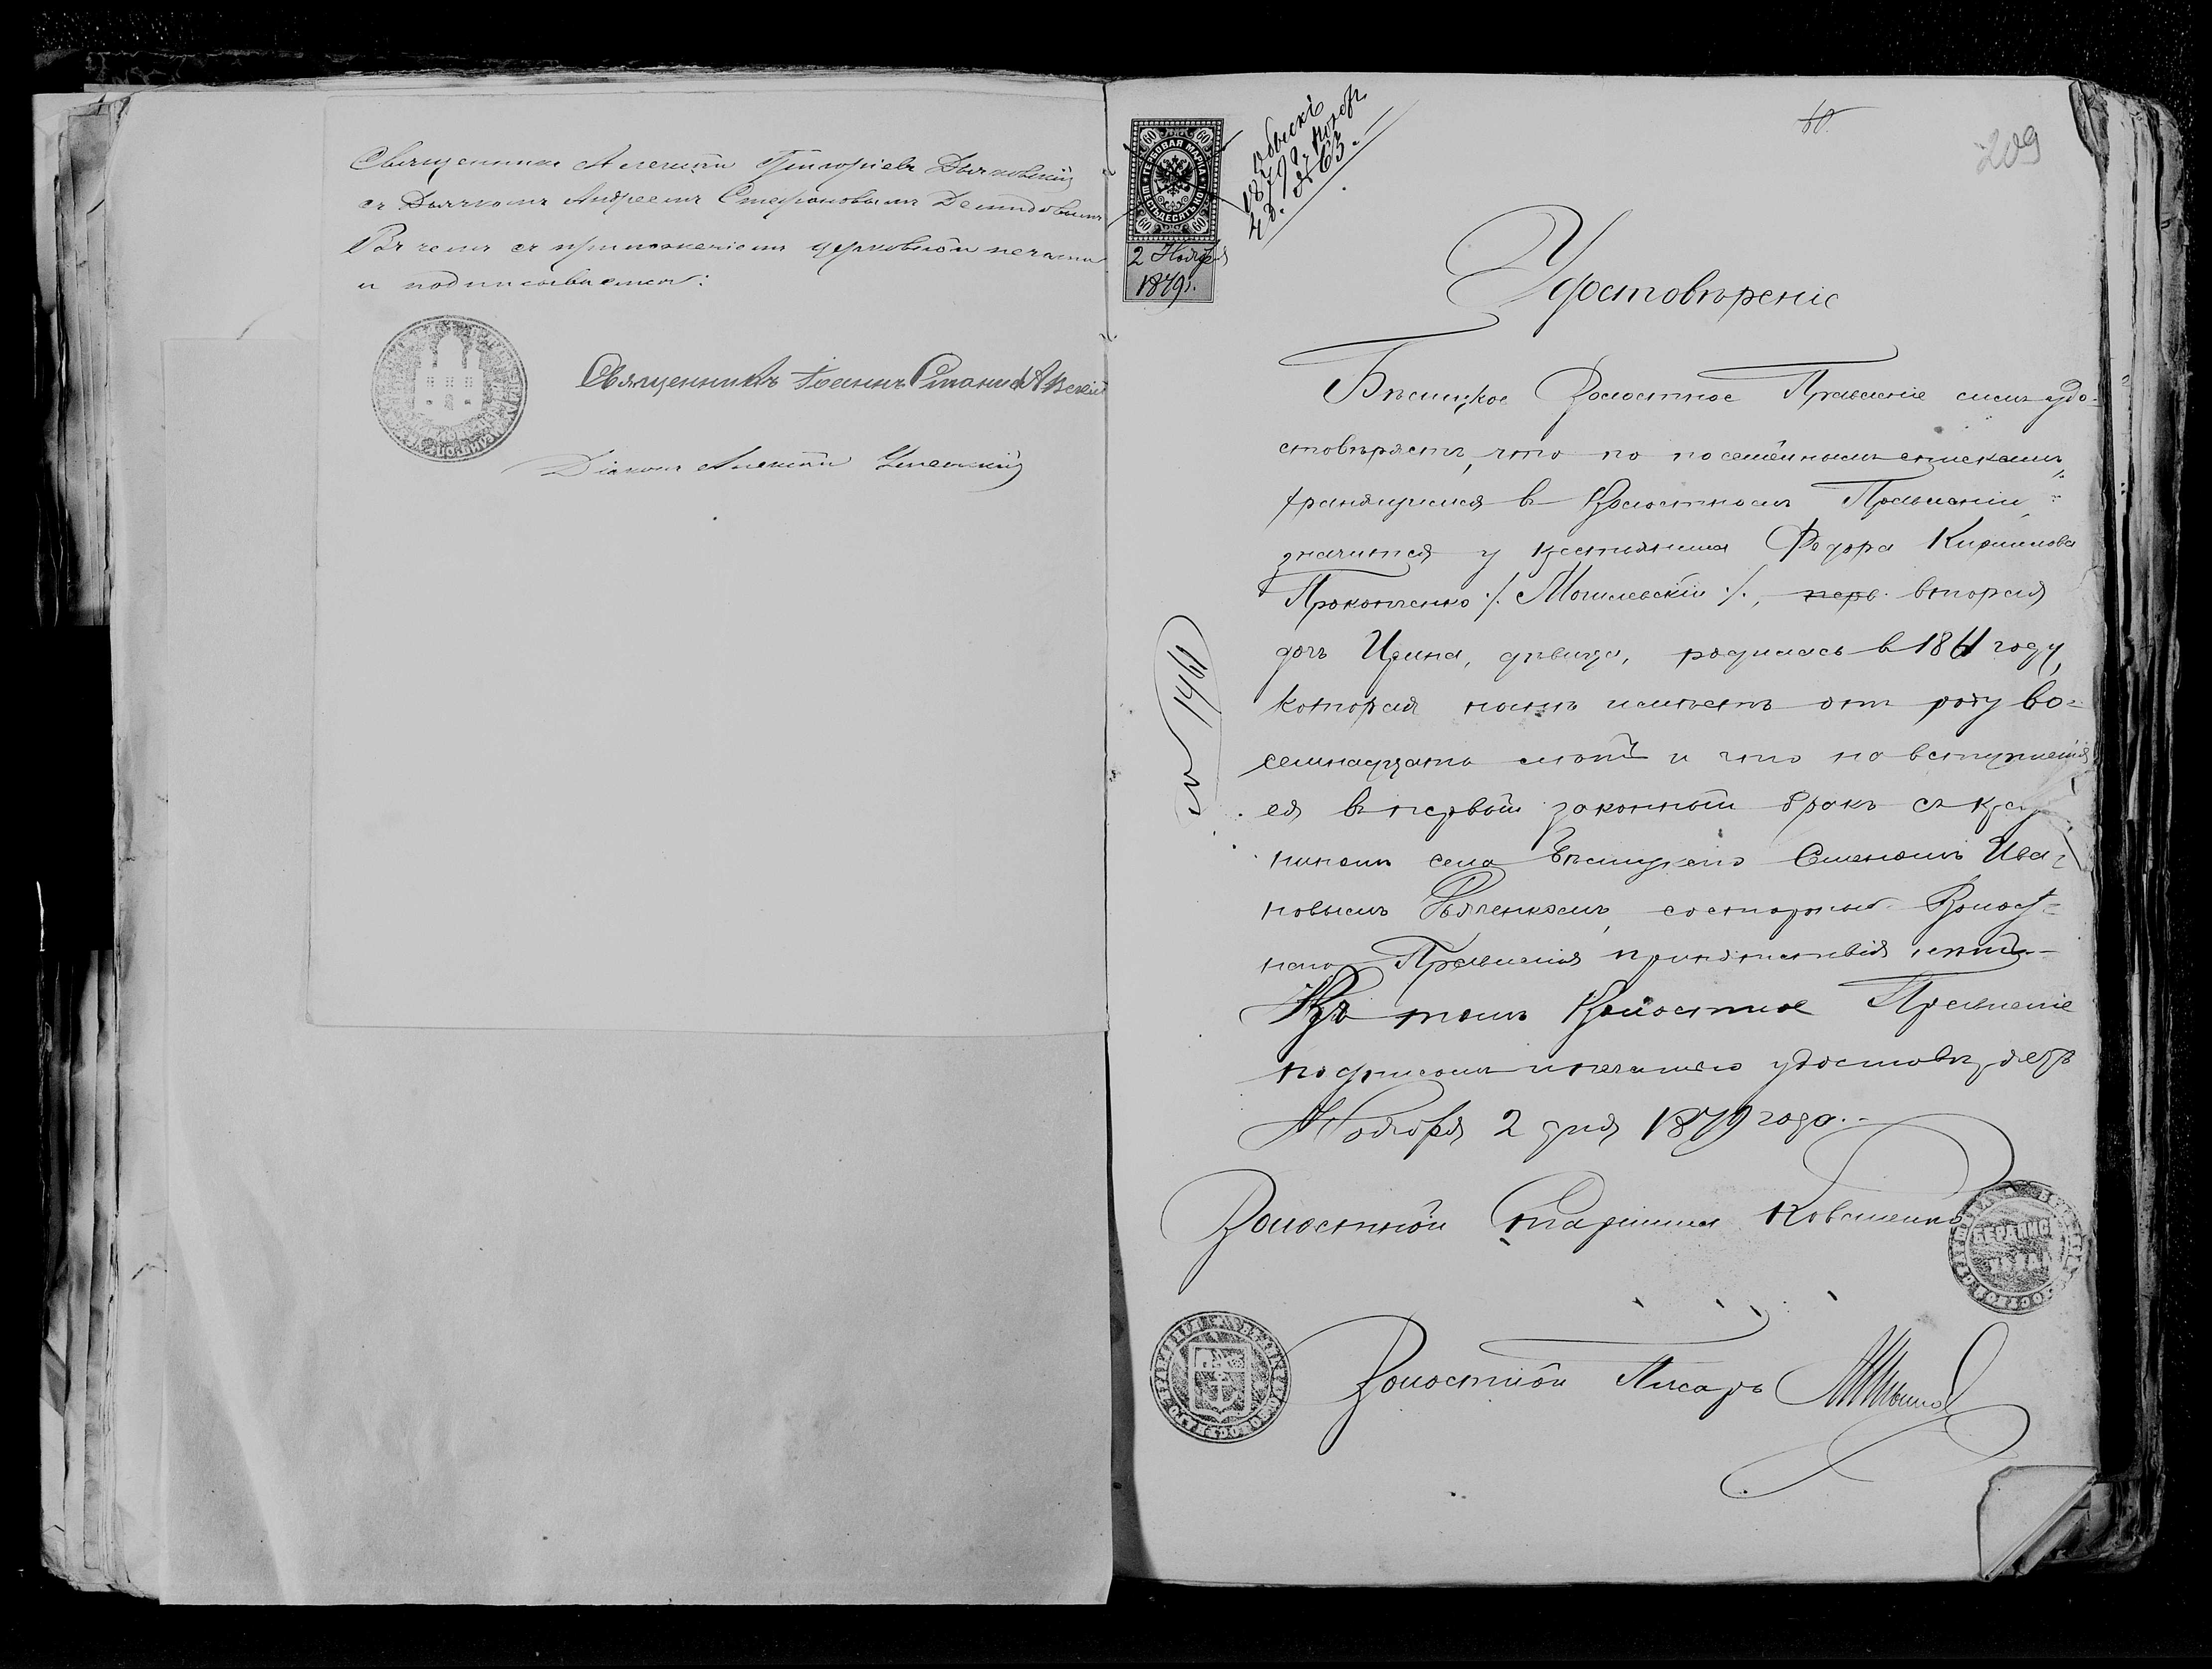 Священникъ Алексѣй Григорьевъ
съ Дьячкомъ Андреемъ Стефановымъ Демидовымъ
Въ чемъ съ приложеніемъ церковной печати
и подписываемся:
Священникъ Іоаннъ
Діаконъ Алексѣй
60
ГЕРБОВАЯ МАРКА
ШЕСТЬДЕСЯТЪ КОП
60
2 Ноября
1879г.
Обыскъ
1879 г. Ноябр.
4 д. № 63.
60
209
Удостовѣреніе
Волостное Правленіе симъ удо-
стовѣряетъ, что по посемейнымъ спискамъ,
хранящимся в Волостномъ Правленіи,
значится у крестьянина Федора Кирилова
Прокопченко /. Могилевскій /., перв. вторая
дочь Ирина, дѣвица, родилась в 1861 году,
которая нынѣ имѣетъ отъ роду во-
семнадцать лѣтъ и что на вступленія
ея въ первый законный бракъ съ крес
ниномъ села Семеномъ Ива-
новымъ со стороны Волост-
наго Правленія препятствія нѣтъ
Въ томъ Волостное Правленіе
подписомъ и печатью удостовѣряетъ
Ноября 2 дня 1879 года.
№ 1461
Волостной Старшина
БЕРДЯНСК
УѢЗДА
Волостной Писарь